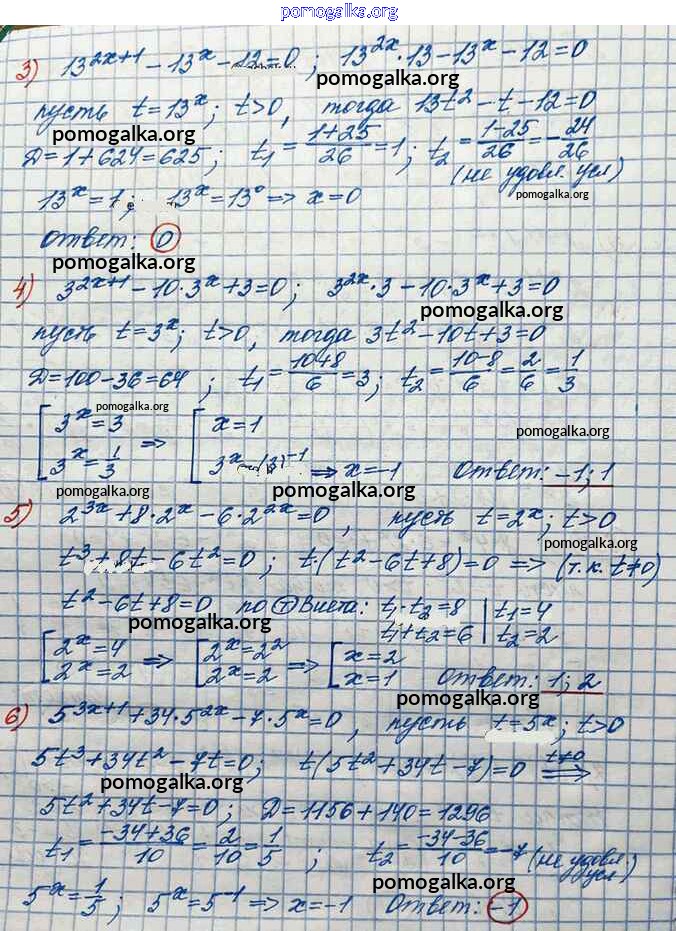 pomogalka.org
3) 13^(2x+1) - 13^x - 12 = 0 ; 13^(2x) · 13 - 13^x - 12 = 0
pomogalka.org
пусть t = 13^x ; t > 0, тогда 13t² - t - 12 = 0
pomogalka.org
D = 1 + 624 = 625 ; t₁ = (1+25)/26 = 1 ; t₂ = (1-25)/26 = -24/26
(не удовл. усл)
pomogalka.org
13^x = 1 ; 13^x = 13⁰ => x = 0
Ответ: 0
pomogalka.org
4) 3^(2x+1) - 10·3^x + 3 = 0 ; 3^(2x) · 3 - 10·3^x + 3 = 0
pomogalka.org
пусть t = 3^x ; t > 0, тогда 3t² - 10t + 3 = 0
D = 100 - 36 = 64 ; t₁ = (10+8)/6 = 3 ; t₂ = (10-8)/6 = 2/6 = 1/3
pomogalka.org
[ 3^x = 3 => [ x = 1
pomogalka.org
3^x = 1/3 3^x = (3)^(-1) => x = -1 Ответ: -1; 1
pomogalka.org
pomogalka.org
5) 2^(3x) + 8·2^x - 6·2^(2x) = 0, пусть t = 2^x ; t > 0
pomogalka.org
t³ + 8t - 6t² = 0 ; t·(t² - 6t + 8) = 0 => (т.к. t≠0)
t² - 6t + 8 = 0 по Т Виета: t₁·t₂ = 8 | t₁ = 4
t₁ + t₂ = 6 | t₂ = 2
pomogalka.org
[ 2^x = 4 => [ 2^x = 2² => [ x = 2
2^x = 2 2^x = 2 x = 1 Ответ: 1; 2
pomogalka.org
6) 5^(3x+1) + 34·5^(2x) - 7·5^x = 0, пусть t = 5^x ; t > 0
5t³ + 34t² - 7t = 0 ; t(5t² + 34t - 7) = 0 t≠0 =>
pomogalka.org
5t² + 34t - 7 = 0 ; D = 1156 + 140 = 1296
t₁ = (-34+36)/10 = 2/10 = 1/5 ; t₂ = (-34-36)/10 = -7 (не удовл. усл)
pomogalka.org
5^x = 1/5 ; 5^x = 5^(-1) => x = -1 Ответ: -1